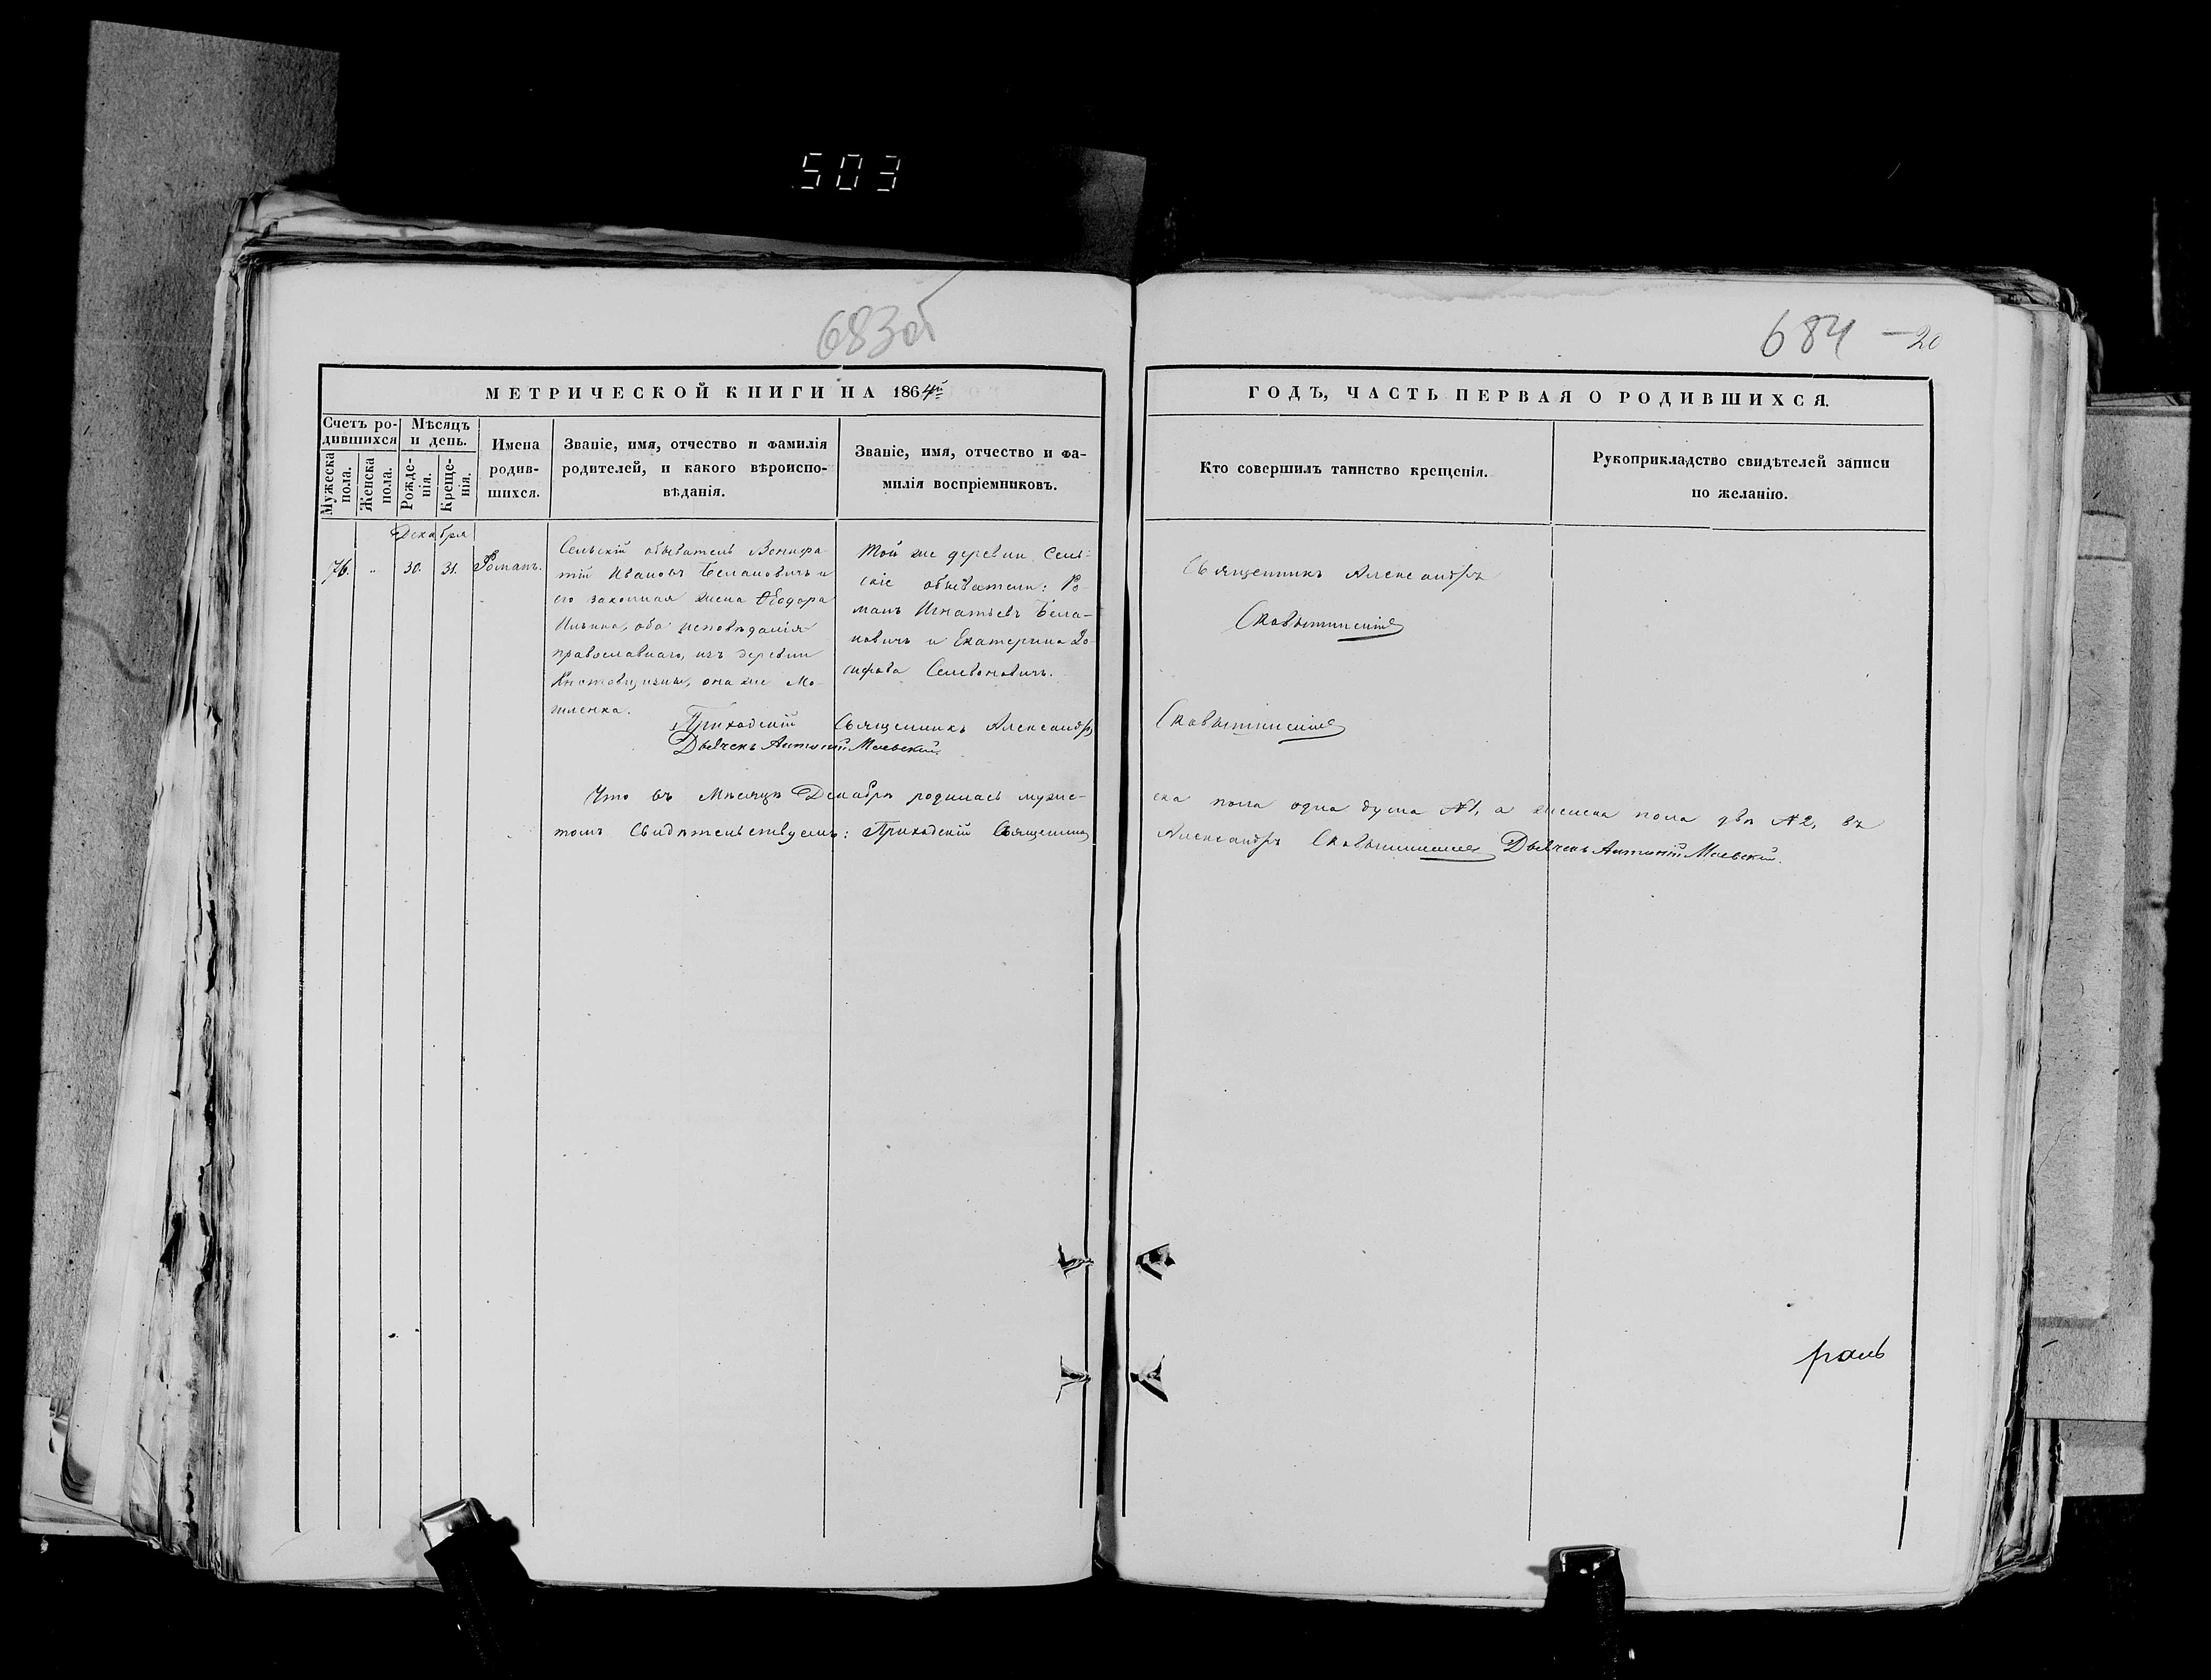 503
683об
684 — 20
МЕТРИЧЕСКОЙ КНИГИ НА 1864й
ГОДЪ, ЧАСТЬ ПЕРВАЯ О РОДИВШИХСЯ.
Счетъ ро-
дившихся
Мѣсяцъ
и день.
Мужеска
пола.
Женска
пола.
Рожде-
нія.
Креще-
нія.
Имена
родив-
шихся.
Званіе, имя, отчество и фамилія
родителей, и какого вѣроиспо-
вѣданія.
Званіе, имя, отчество и фа-
милія воспріемниковъ.
Кто совершилъ таинство крещенія.
Рукоприкладство свидѣтелей записи
по желанію.
Декабря
76. „ 30. 31. Романъ.
Сельскій обыватель Вонифа-
тій Ивановъ Белановичъ и
его законная жена Ѳеодора
Ильина, оба исповѣданія
православнаго, изъ деревни
она же Мо-
Той же деревни Сель-
скіе обыватели: Ро-
манъ Игнатьевъ Бела-
новичъ и Екатерина
Священникъ Александръ
Приходскій Священникъ Александръ
Дьячекъ Антоній Маевскій.
Что въ Мѣсяцѣ Декабрѣ родилась муже-
ска пола одна душа №1, а женска пола двѣ №2, въ
томъ Свидѣтельствуемъ: Приходскій Священникъ
Александръ Дьячекъ Антоній Маевскій.